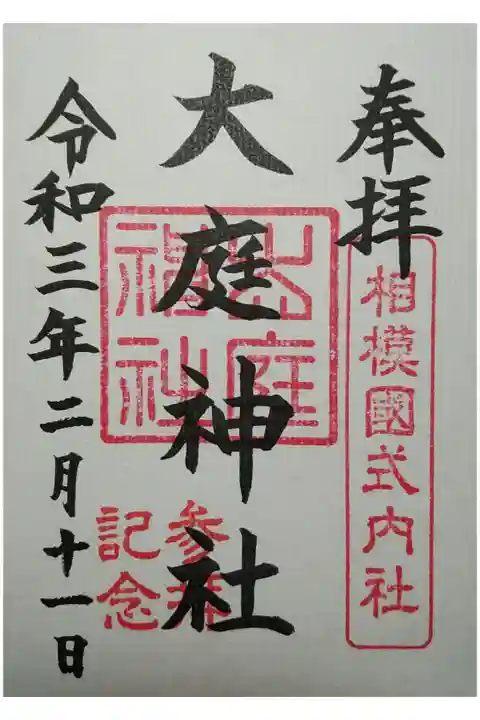 奉拝
相模國式内社
大庭神社
大庭神社
参拝記念
令和三年二月十一日